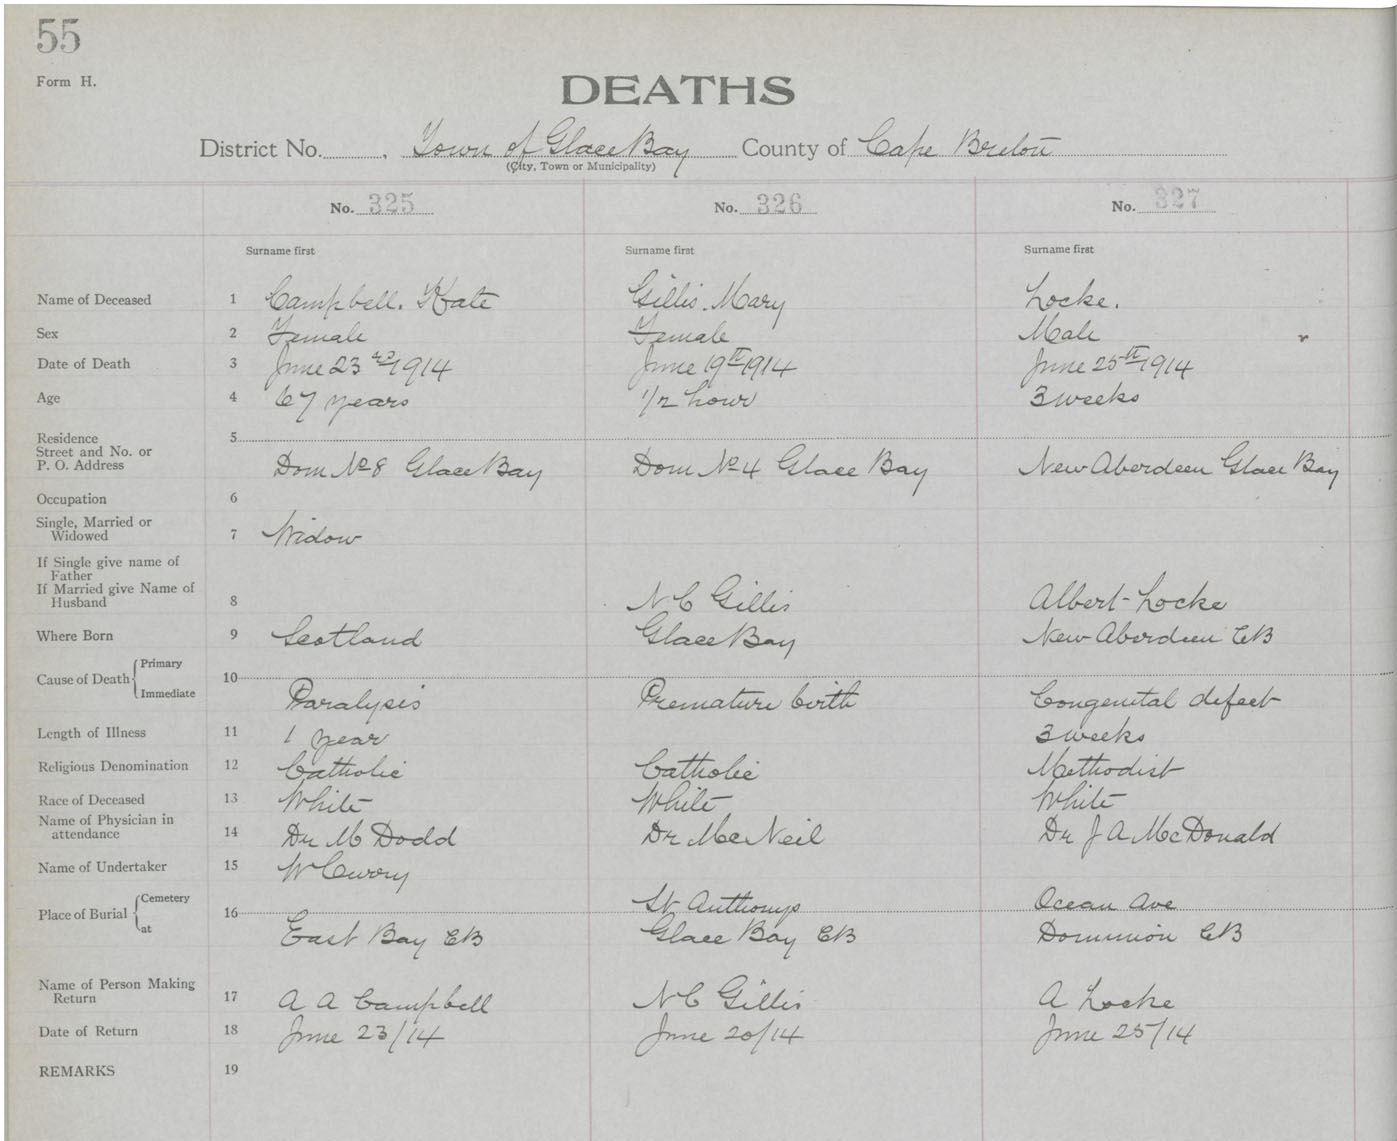 55
Form H.
DEATHS
District No. Town of Glace Bay County of Cape Breton
(City, Town or Municipality)
No. 325 No. 326 No. 327
Surname first Surname first Surname first
Name of Deceased 1 Campbell. Kate Gillis. Mary Locke.
Sex 2 Female Female Male
Date of Death 3 June 23rd 1914 June 19th 1914 June 25th 1914
Age 4 67 years 1/2 hour 3 weeks
Residence 5
Street and No. or
P. O. Address Dom No 8 Glace Bay Dom No 4 Glace Bay New Aberdeen Glace Bay
Occupation 6
Single, Married or
Widowed 7 Widow
If Single give name of
Father
If Married give Name of
Husband 8 N C Gillis Albert Locke
Where Born 9 Scotland Glace Bay New Aberdeen CB
Cause of Death Primary 10
Immediate Paralysis Premature birth Congenital defect
Length of Illness 11 1 year 3 weeks
Religious Denomination 12 Catholic Catholic Methodist
Race of Deceased 13 White White White
Name of Physician in
attendance 14 Dr M Dodd Dr McNeil Dr J A McDonald
Name of Undertaker 15
Place of Burial Cemetery 16 St Anthonys Ocean Ave
at East Bay CB Glace Bay CB Dominion CB
Name of Person Making
Return 17 A A Campbell N C Gillis A Locke
Date of Return 18 June 23/14 June 20/14 June 25/14
REMARKS 19